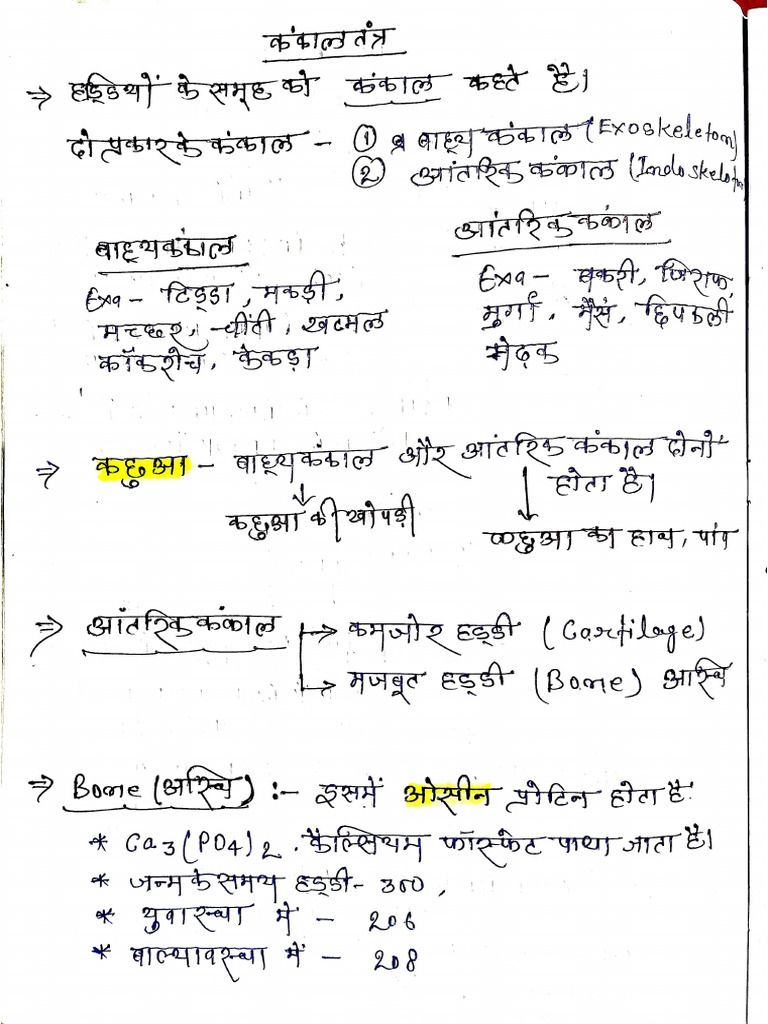 कंकाल तंत्र
⇒ हड्डियों के समूह को कंकाल कहते है।
दो प्रकार के कंकाल - ① बाह्य कंकाल (Exoskeleton)
② आंतरिक कंकाल (Indoskeleton
बाह्य कंकाल
Exa - टिड्डा, मकड़ी,
मच्छर, चींटी, खटमल
कॉकरोच, केकड़ा
आंतरिक कंकाल
Exa - बकरी, जिराफ,
मुर्गा, भैंस, छिपकली
मेढ़क
⇒ कछुआ - बाह्य कंकाल और आंतरिक कंकाल दोनों
होता है।
कछुआ की खोपड़ी
कछुआ का हाथ, पांव
⇒ आंतरिक कंकाल → कमजोर हड्डी (Cartilage)
→ मजबूत हड्डी (Bone) अस्थि
⇒ Bone (अस्थि) :- इसमें ओसीन प्रोटिन होता है
* Ca3(PO4)2. कैल्सियम फॉस्फेट पाया जाता है।
* जन्म के समय हड्डी - 300,
* युवास्था में - 206
* बाल्यावस्था में - 208